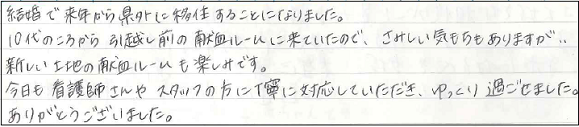 結婚で来年から県外に移住することになりました。
10代のころから引越し前の献血ルームに来ていたので、さみしい気もちもありますが‥
新しい土地の献血ルームも楽しみです。
今日も看護師さんやスタッフの方に丁寧に対応していただき、ゆっくり過ごせました。
ありがとうございました。